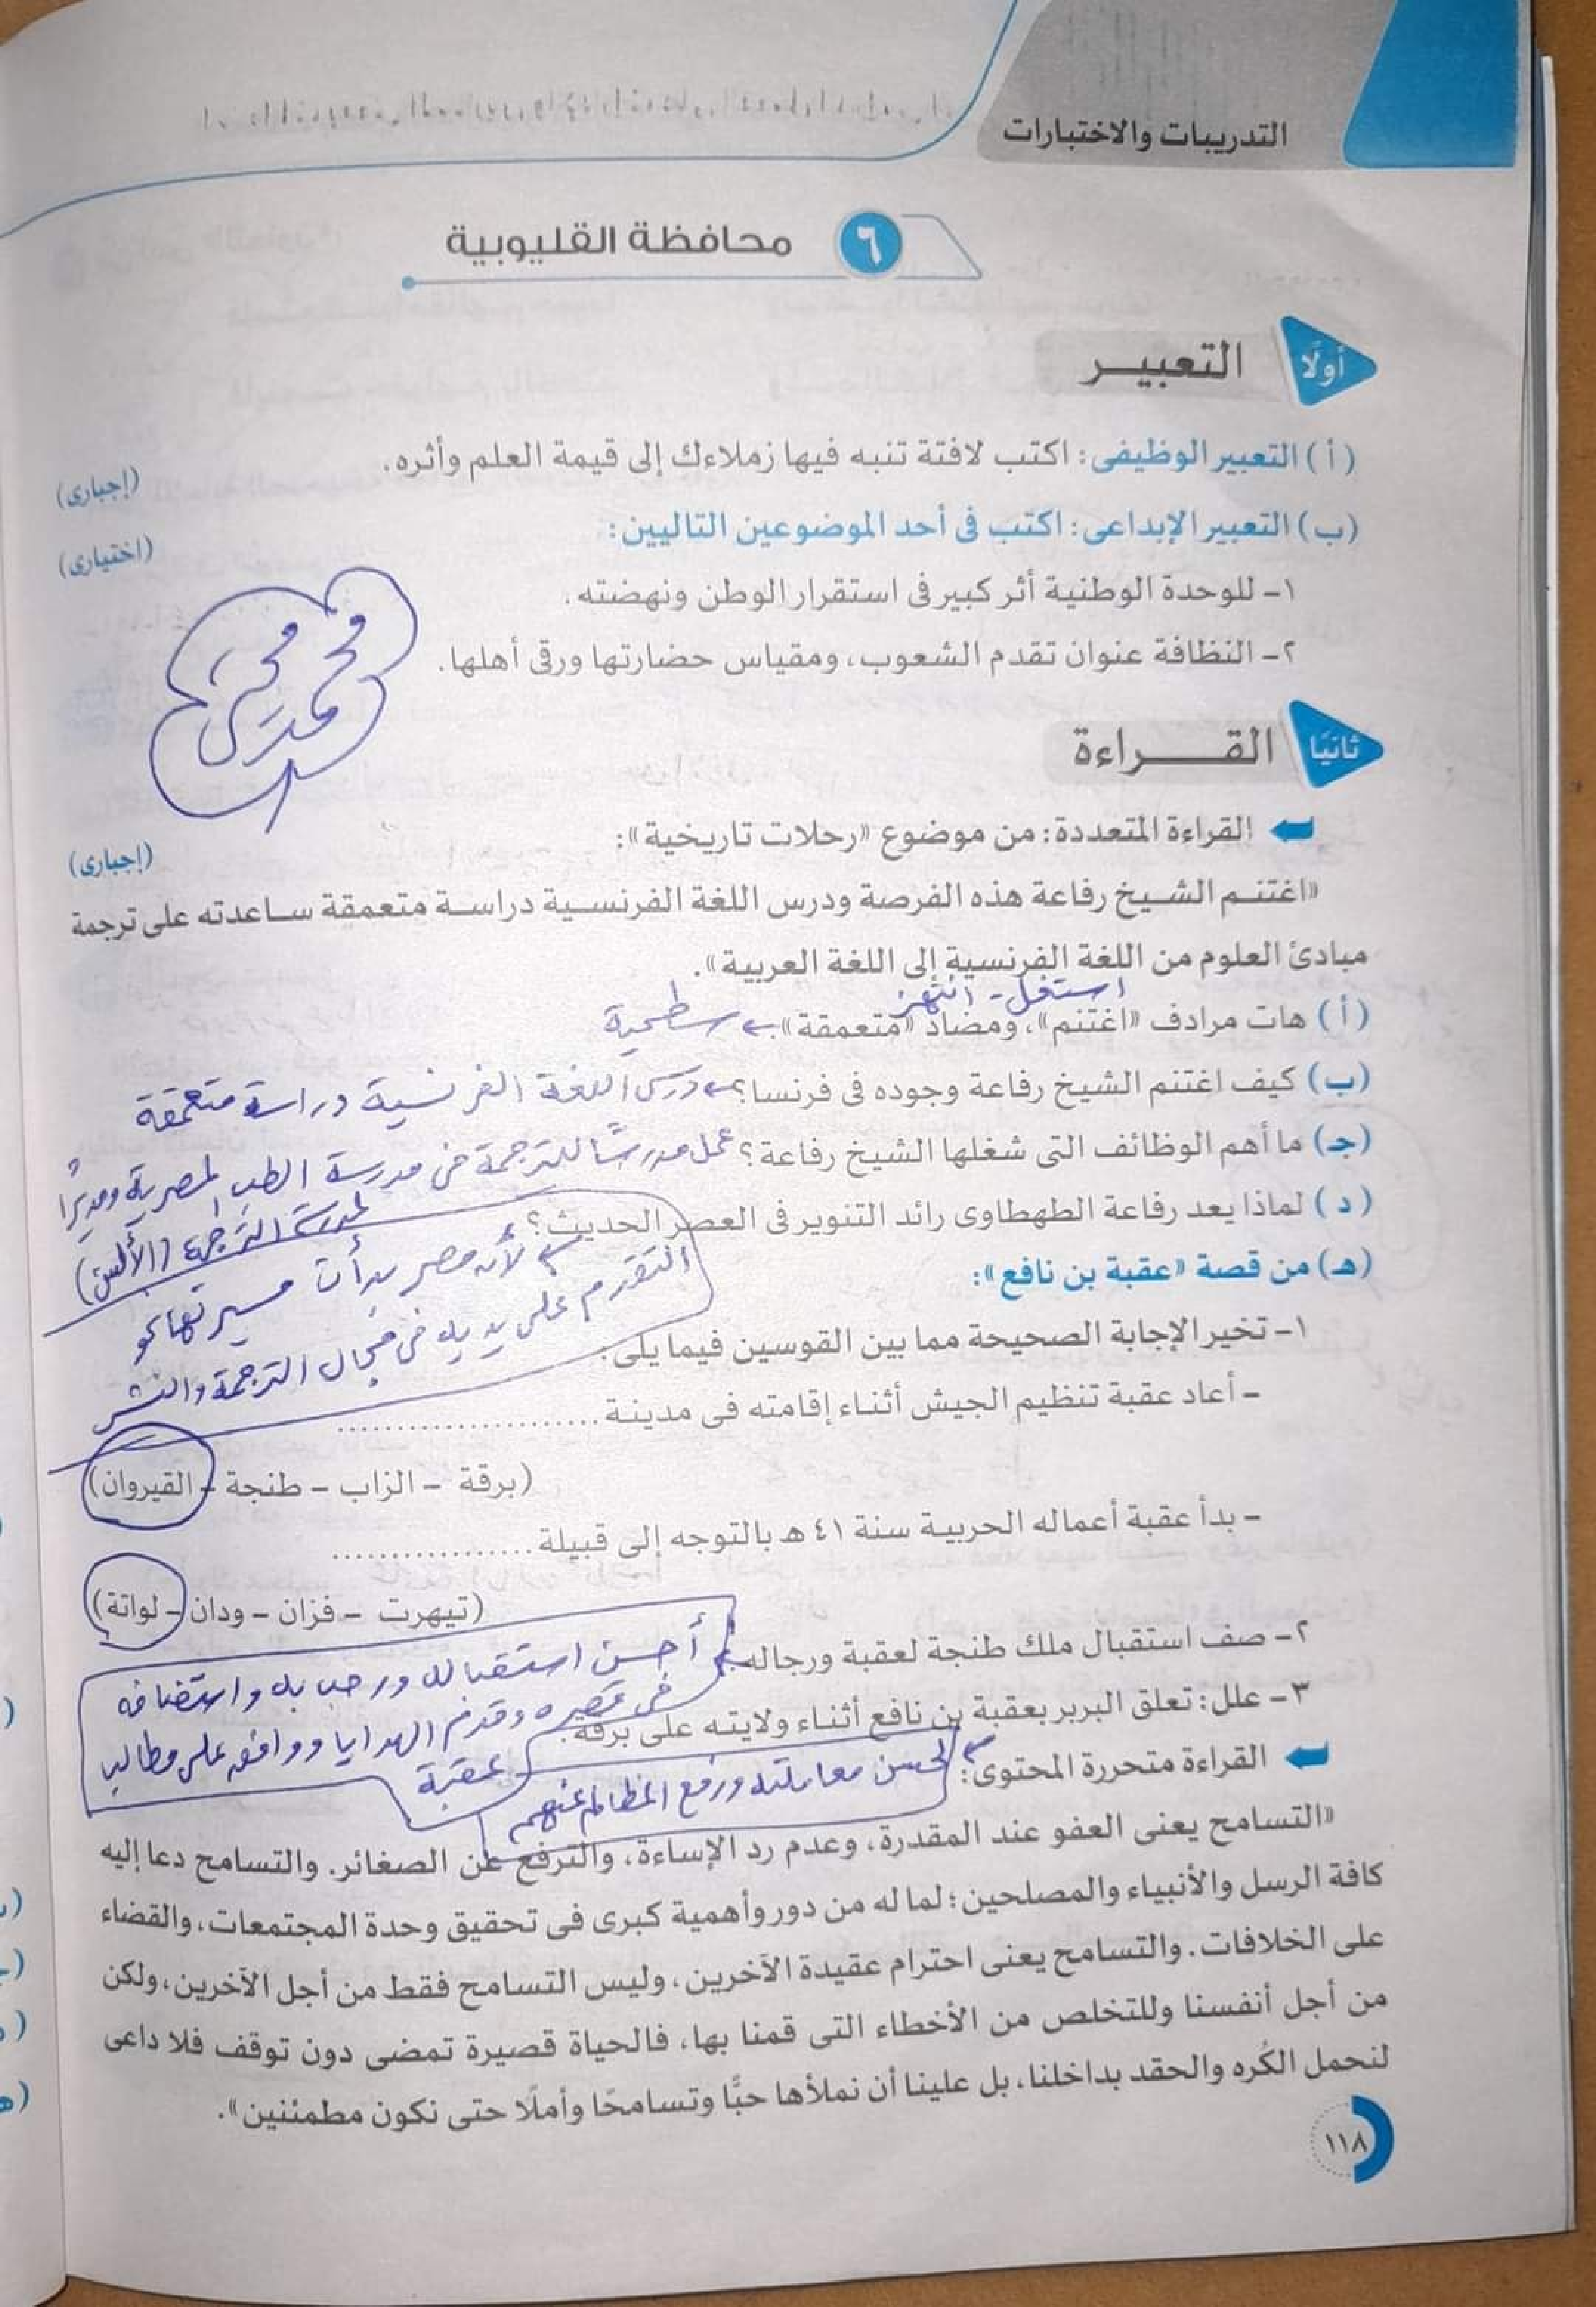 التدريبات والاختبارات
٦ محافظة القليوبية
أولًا التعبير
(أ) التعبير الوظيفى: اكتب لافتة تنبه فيها زملاءك إلى قيمة العلم وأثره.
(إجبارى)
(ب) التعبير الإبداعى: اكتب فى أحد الموضوعين التاليين:
(اختيارى)
١- للوحدة الوطنية أثر كبير فى استقرار الوطن ونهضته.
٢- النظافة عنوان تقدم الشعوب، ومقياس حضارتها ورقى أهلها.
ثانيًا القراءة
القراءة المتعددة: من موضوع «رحلات تاريخية»:
(إجبارى)
«اغتنم الشيخ رفاعة هذه الفرصة ودرس اللغة الفرنسية دراسة متعمقة ساعدته على ترجمة
مبادئ العلوم من اللغة الفرنسية إلى اللغة العربية».
استغل - انتهز
(أ) هات مرادف «اغتنم»، ومضاد «متعمقة». سطحية
(ب) كيف اغتنم الشيخ رفاعة وجوده فى فرنسا؟ درس اللغة الفرنسية دراسة متعمقة
(جـ) ما أهم الوظائف التى شغلها الشيخ رفاعة؟ عمل مدرسًا للترجمة فى مدرسة الطب المصرية ومديرًا
لمدرسة الترجمة (الألسن)
(د) لماذا يعد رفاعة الطهطاوى رائد التنوير فى العصر الحديث؟
لأنه مصر بدأت مسيرتها نحو
التقدم على يديه فى مجال الترجمة والنشر
(هـ) من قصة «عقبة بن نافع»:
١- تخير الإجابة الصحيحة مما بين القوسين فيما يلى:
- أعاد عقبة تنظيم الجيش أثناء إقامته فى مدينة ......................
(برقة - الزاب - طنجة - القيروان)
- بدأ عقبة أعماله الحربية سنة ٤١ هـ بالتوجه إلى قبيلة .................
(تيهرت - فزان - ودان - لواتة)
٢- صف استقبال ملك طنجة لعقبة ورجاله. أحسن استقباله ورحب به واستضافه
فى قصره وقدم الهدايا ووافق على مطالب
عقبة
٣- علل: تعلق البربر بعقبة بن نافع أثناء ولايته على برقة.
لحسن معاملته ورفع المظالم عنهم
القراءة متحررة المحتوى:
«التسامح يعنى العفو عند المقدرة، وعدم رد الإساءة، والترفع عن الصغائر. والتسامح دعا إليه
كافة الرسل والأنبياء والمصلحين؛ لما له من دور وأهمية كبرى فى تحقيق وحدة المجتمعات، والقضاء
على الخلافات. والتسامح يعنى احترام عقيدة الآخرين، وليس التسامح فقط من أجل الآخرين، ولكن
من أجل أنفسنا وللتخلص من الأخطاء التى قمنا بها، فالحياة قصيرة تمضى دون توقف فلا داعى
لنحمل الكُره والحقد بداخلنا، بل علينا أن نملأها حبًّا وتسامحًا وأملًا حتى نكون مطمئنين».
١١٨